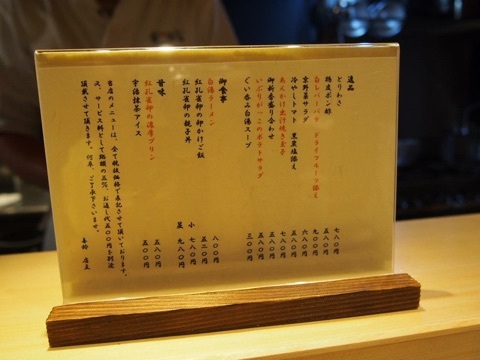 逸品
とりわさ 七八〇円
鶏皮ポン酢 五八〇円
白レバーパテ ドライフルーツ添え 九〇〇円
京野菜サラダ 八八〇円
冷やしトマト 黒炭塩添え 五五〇円
あんかけ出汁焼き玉子 七八〇円
御新香盛り合わせ 五八〇円
いぶりがっこのポテトサラダ 五八〇円
ぐい呑み白湯スープ 三〇〇円
御食事
白湯ラーメン 八〇〇円
紅孔雀卵の卵かけご飯 五二〇円
紅孔雀卵の親子丼 小 七八〇円
並 九八〇円
甘味
紅孔雀卵の濃厚プリン 五八〇円
宇治抹茶アイス 五〇〇円
当店のメニューは、全て税抜価格で表記させて頂いております。
又、サービス料として総額の五%、お通し代五〇〇円を別途
頂戴させて頂きます。何卒、ご了承下さいませ。
店主